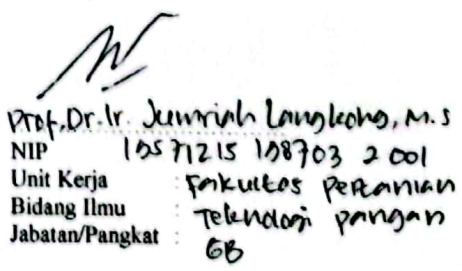 Prof. Dr. Ir. Jumriah Langkong, M.S
NIP 19571215 198703 2 001
Unit Kerja : Fakultas Pertanian
Bidang Ilmu : Teknologi pangan
Jabatan/Pangkat : GB